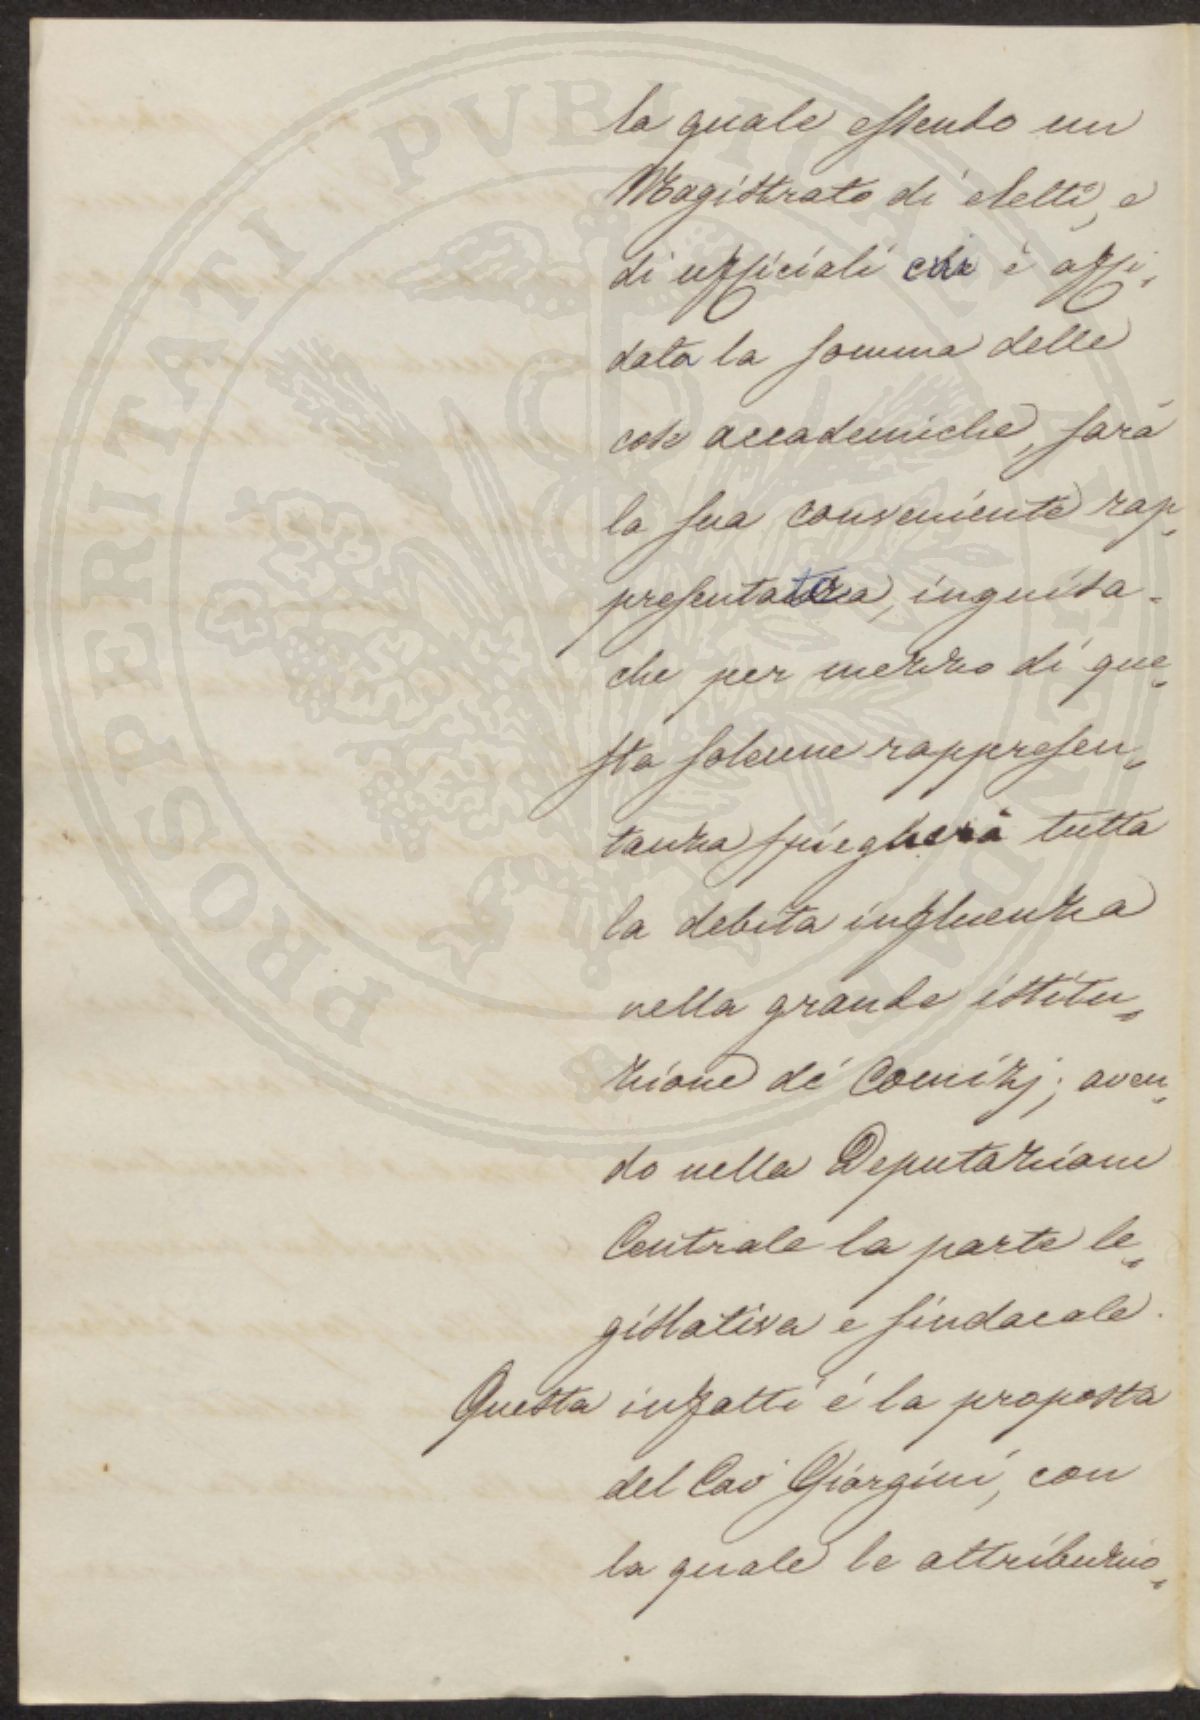 la quale essendo un
Magistrato di eletti, e
di ufficiali cui è affi„
data la somma delle
cose accademiche, sarà
la sua conveniente rap„
presentatrice, inguisa-
che per mezzo di que„
sta solenne rappresen„
tanza spiegherà tutta
la debita influenza
nella grande istitu„
zione de' Comizj; aven„
do nella Deputazione
Centrale la parte le„
gislativa e sindacale.
Questa infatti è la proposta
del Cav Giorgini, con
la quale le attribuzio„
PROSPERITATI PVBLICAE AVGENDAE